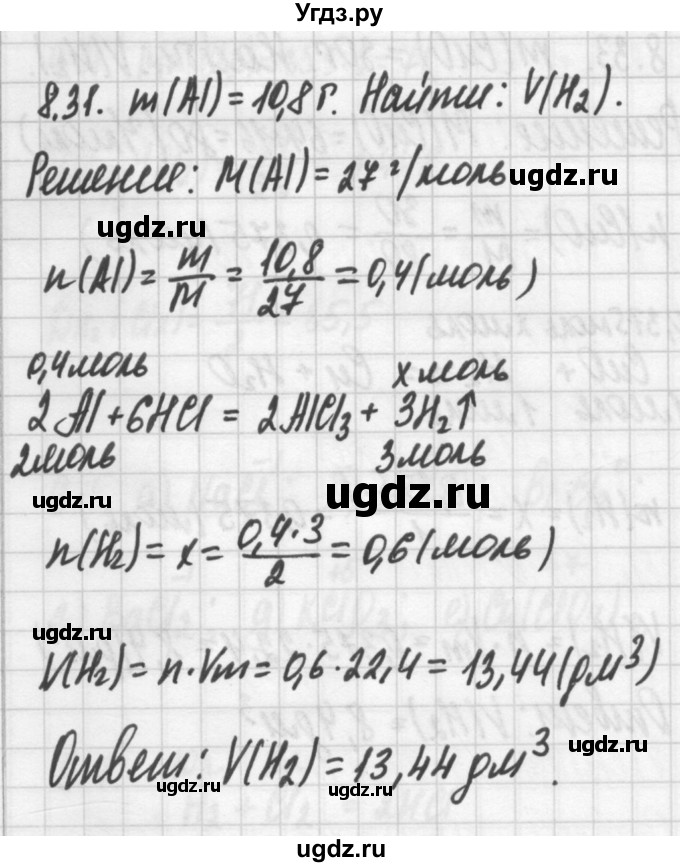 Угдз.ру
8.31. m(Al)=10,8 г. Найти: V(H₂).
Решение: M(Al)=27 г/моль
ugdz.ru ugdz.ru
n(Al)= m/M = 10,8/27 =0,4(моль)
ugdz.ru
0,4моль x моль
2Al+6HCl = 2AlCl₃+ 3H₂↑
2моль 3моль
ugdz.ru ugdz.ru
n(H₂)= x= 0,4·3/2 =0,6(моль)
ugdz.ru
V(H₂)= n·Vm=0,6·22,4=13,44(дм³)
Ответ: V(H₂)=13,44 дм³.
ugdz.ru
ugdz.ru ugdz.ru
ugdz.ru